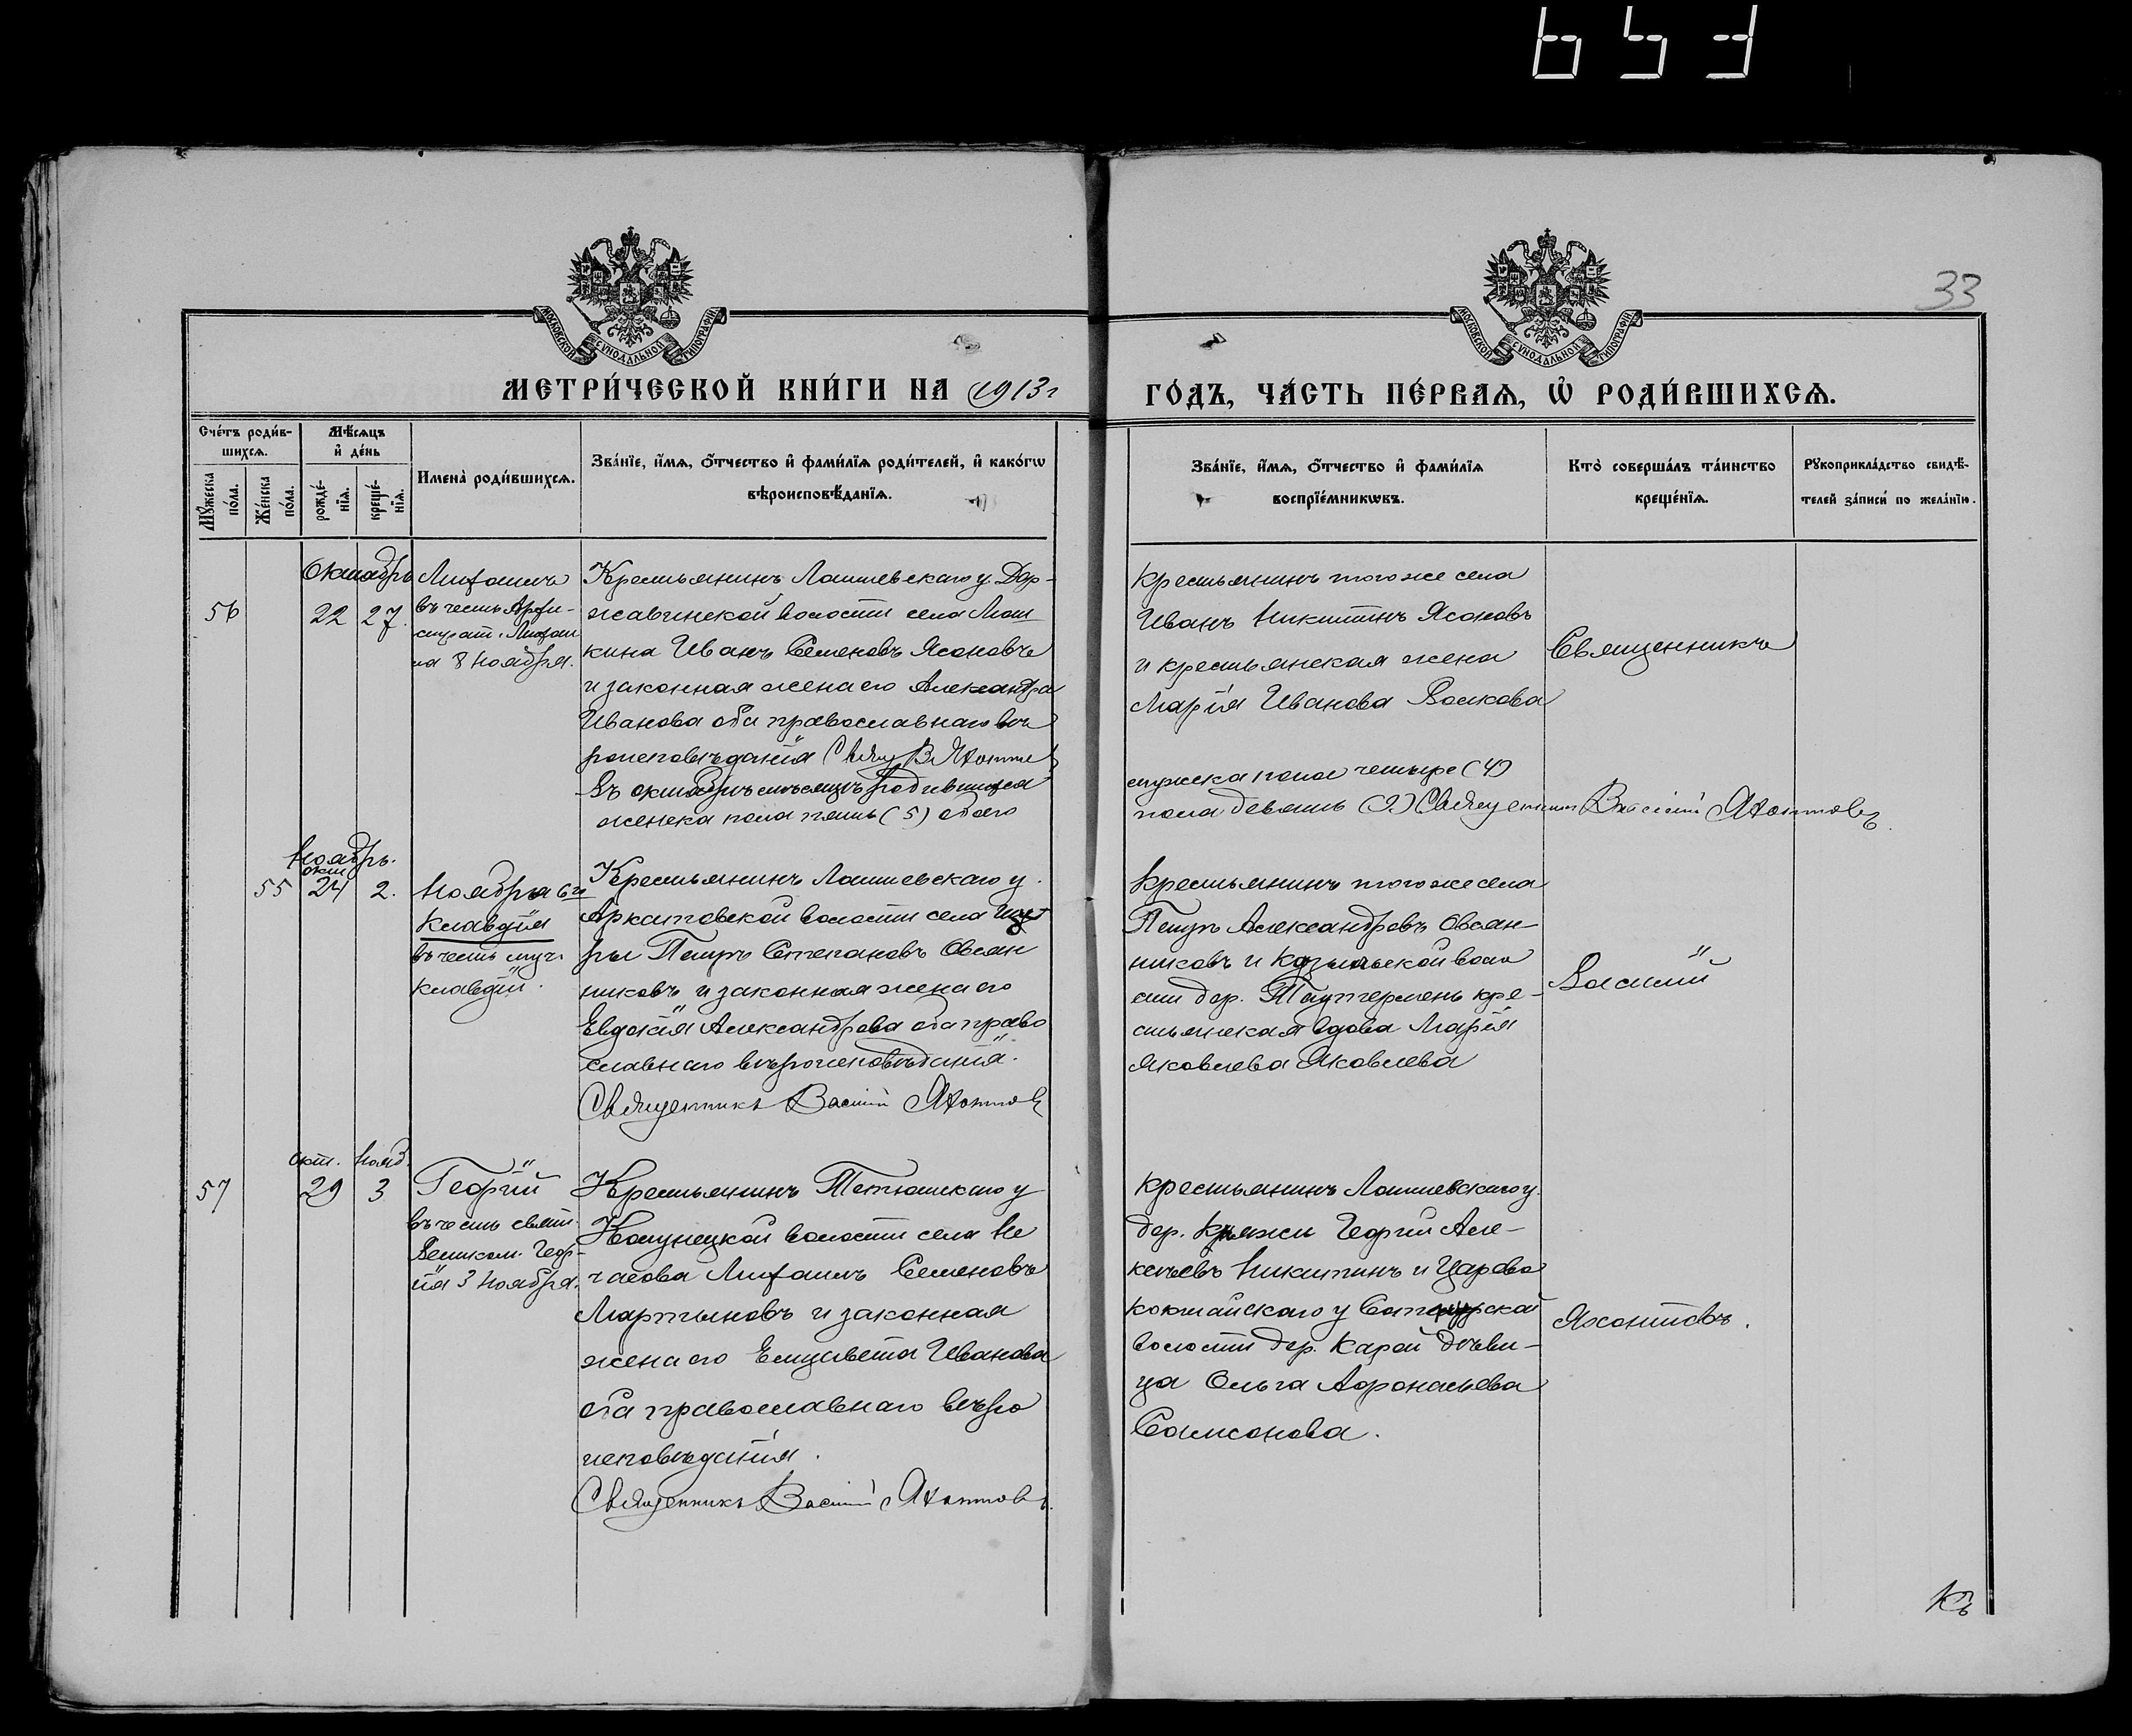 653
33
МОСКОВСКОЙ СѴНОДАЛЬНОЙ ТИПОГРАФІИ
МОСКОВСКОЙ СѴНОДАЛЬНОЙ ТИПОГРАФІИ
МЕТРИ́ЧЕСКОЙ КНИ́ГИ НА 1913 г
ГО́ДЪ, ЧА́СТЬ ПЕ́РВАѦ, Ѡ҆ РОДИ́ВШИХСѦ.
Сче́тъ роди́в-
шихсѧ.
Мѣ́сѧцъ
и҆ де́нь
Мꙋ́жеска
по́ла.
Же́нска
по́ла.
рожде́-
нїѧ.
креще́-
нїѧ.
Имена̀ роди́вшихсѧ.
Зва́нїе, и҆́мѧ, ѻ҆́тчество и҆ фами́лїѧ роди́телей, и҆ како́гѡ
вѣроисповѣ́данїѧ.
Зва́нїе, и҆́мѧ, ѻ҆́тчество и҆ фами́лїѧ
воспрїе́мникѡвъ.
Кто̀ соверша́лъ та́инство
креще́нїѧ.
Рꙋкоприкла́дство свидѣ́-
телей за́писи по жела́нїю.
Октябрь
56 22 27.
Михаилъ
въ честь Архи-
страт. Михаи
ла 8 Ноября.
Крестьянинъ Лаишевскаго у. Дер-
жавинской волости села Маш
кина Иванъ Семеновъ Ясоновъ
и законная жена его Александра
Иванова оба православнаго вѣ
роисповѣданія Свящ В. Яхонтов
Въ октябрѣ мѣсяцѣ родившихся
женска пола пять (5) обоего
крестьянинъ того же села
Иванъ Никитинъ Ясоновъ
и крестьянская жена
Марія Иванова Волкова
мужска пола четыре (4)
пола девять (9) Священник Василий Яхонтовъ.
Священникъ
Ноябрь.
окт
55 24 2.
Ноября 6го
Клавдія
въ честь муч.
Клавдіи.
Крестьянинъ Лаишевскаго у.
Аркатовской волости села
ры Петръ Степановъ Овсян
никовъ и законная жена его
Евдокія Александрова оба право
славнаго вѣроисповѣданія.
Священникъ Василий Яхонтовъ
Крестьянинъ того же села
Петръ Александровъ Овсян-
никовъ и воло
сти дер. кре-
стьянская вдова Марія
Яковлева Яковлева
Василій
окт. нояб.
57 29 3
Георгій
въ честь свят.
Великом. Геор-
гія 3 Ноября.
Крестьянинъ Тетюшскаго у
волости села Не
часова Михаилъ Семеновъ
Мартыновъ и законная
жена его Елизавета Иванова
оба православнаго вѣро
исповѣданія.
Священникъ Василий Яхонтовъ.
Крестьянинъ Лаишевскаго у.
дер. Княжи Георгій Але-
ксѣевъ Никитинъ и Царево
кокшайскаго у
волости дер. Карай дѣви-
ца Ольга Афонасьева
Самсонова.
Яхонтовъ.
Къ